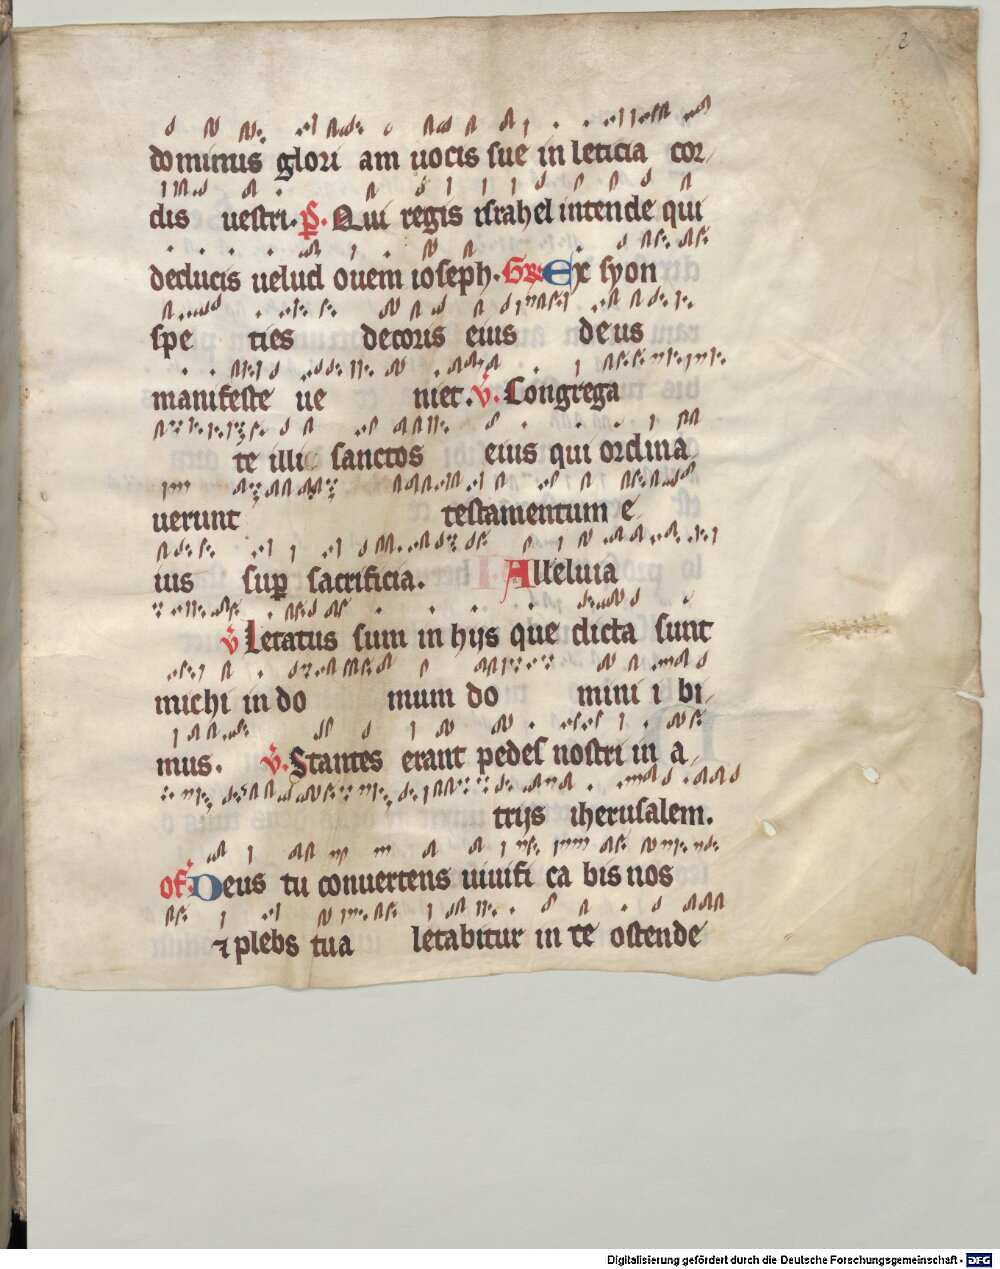 2
dominus glori am uocis sue in leticia cor
dis uestri. Ps. Qui regis israhel intende qui
deducis uelud ouem ioseph. Gr Ex syon
spe ties decoris eius deus
manifeste ue niet. V. Congrega
te illi sanctos eius qui ordina
uerunt testamentum e
ius sup sacrificia. Alleluia
V Letatus sum in hijs que dicta sunt
michi in do mum do mini i bi
mus. V. Stantes erant pedes nostri in a
trijs iherusalem.
of. Deus tu conuertens uiuifi ca bis nos
⁊ plebs tua letabitur in te ostende
Digitalisierung gefördert durch die Deutsche Forschungsgemeinschaft - DFG